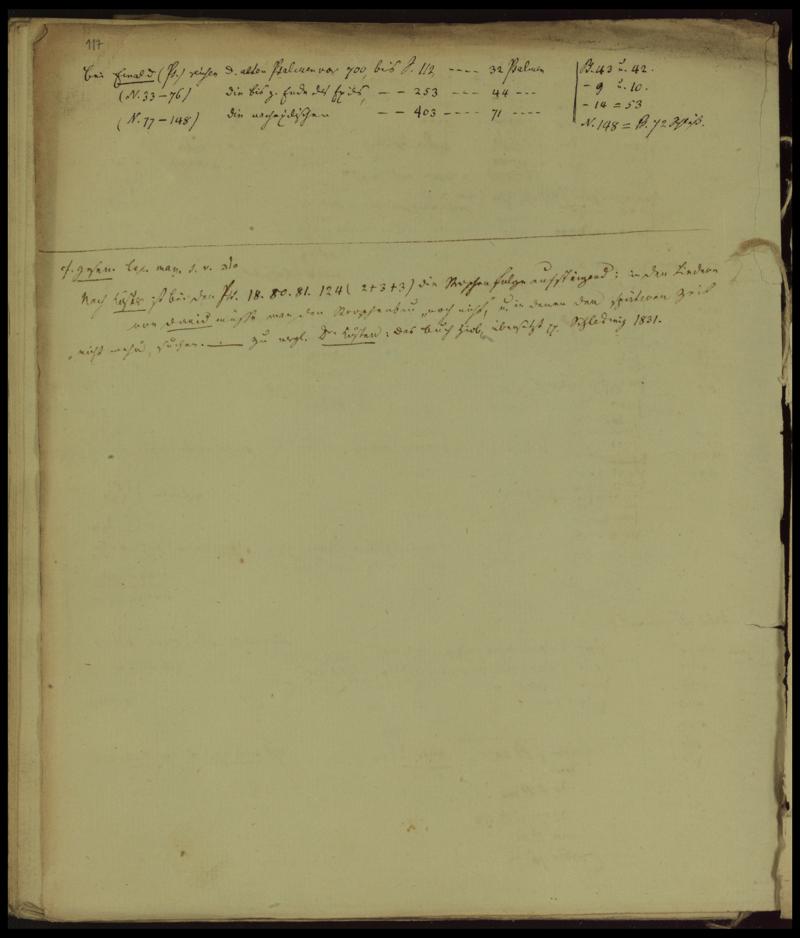 117
bei Ewald (Ps.) reichen d. alten Psalmen vor 700, bis S. 112 ---- 32 Psalmen
(N. 33-76) die bis z. Ende des Exils, -- 253 --- 44 ---
(N. 77-148) die nachexilischen -- 403 ---- 71 ---
Ps. 43 u. 42.
- 9 u. 10.
- 14 = 53
N. 148 = Ps. 72
cf. Gesen. lex. man. s. v.
Nach Köster ist bei den Pss. 18. 80. 81. 124 (2+3+3) die Strophenfolge aufsteigend: in den Liedern
von David müsse man den Strophenbau „noch nicht", u. in denen der späteren Zeit
„nicht mehr" suchen. — zu vergl. Dr Köster: das Buch Hiob, übersetzt pp. Schleswig 1831.